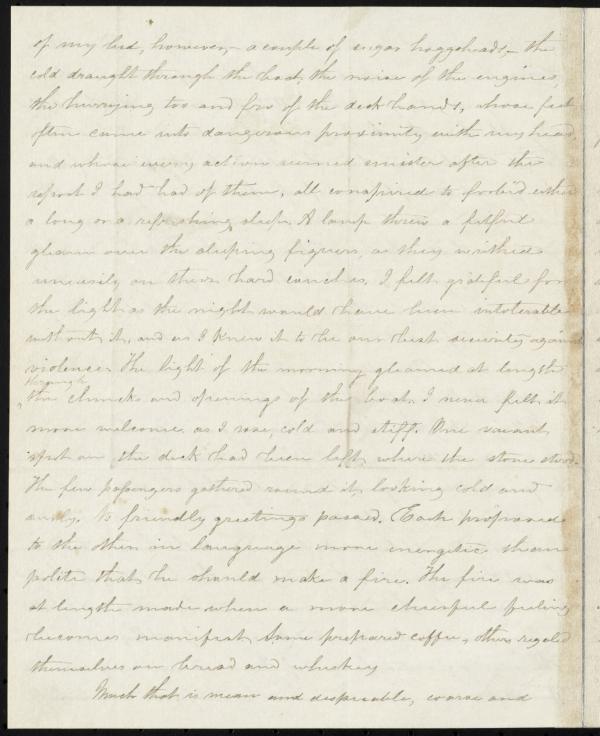 of my bed, however,— a couple of sugar hoggsheads,— the
cold draught through the boat, the noise of the engines,
the hurrying too and fro of the deck hands, whose feet
often came into dangerous proximity with my head,
and whose every action seemed sinister after the
report I had had of them, all conspired to forbid either
a long or a refreshing sleep. A lamp threw a fitful
gleam over the sleeping figures, as they writhed
uneasily on their hard couches. I felt grateful for
the light as the night would have been intolerable
without it, and as I knew it to be our best security against
violence. The light of the morning gleamed at length
through
the chincks and openings of the boat. I never felt it
more welcome, as I rose, cold and stiff. One vacant
spot on the deck had been left, where the stove stood.
The few passengers gathered round it, looking cold and
angry. No friendly greetings passed. Each proposed
to the other in language more energetic than
polite that he should make a fire. The fire was
at length made when a more cheerful feeling
becomes manifest. Some prepared coffee, others regaled
themselves on bread and whiskey
Much that is mean and despicable, coarse and